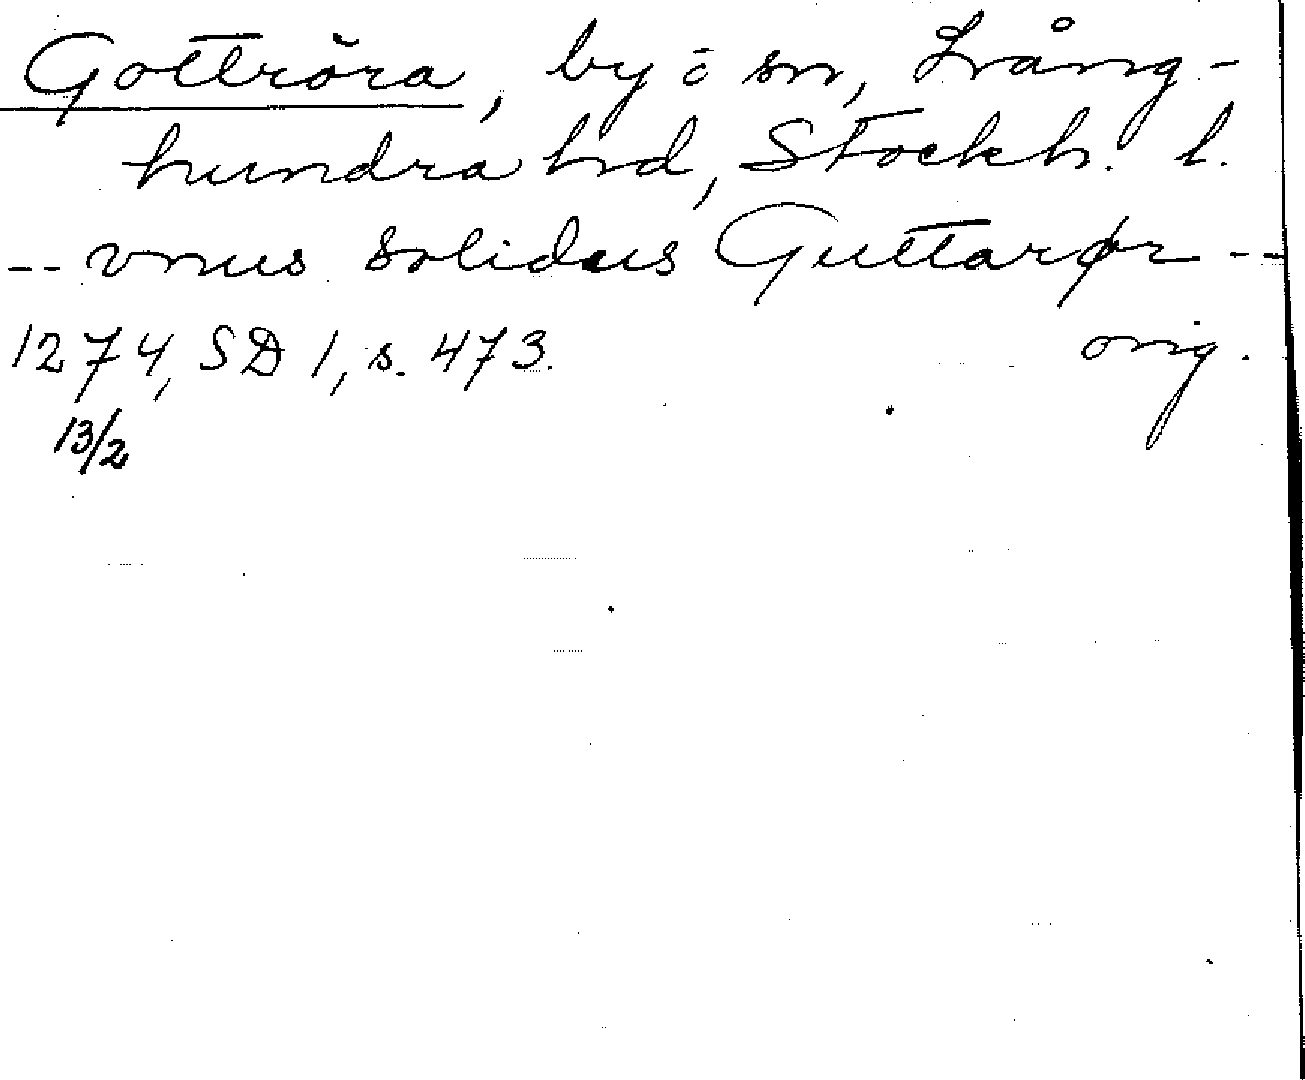 Gottröra, by o sn, Lång-
hundra hd, Stockh. l.
-- vnus solidus Guttarør --
1274, SD 1, s. 473. orig.
13/2